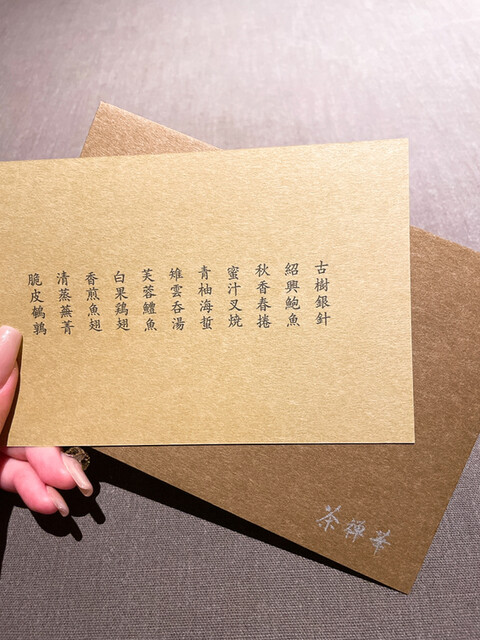 古樹銀針
紹興鮑魚
秋香春捲
蜜汁叉焼
青柚海蜇
雉雲呑湯
芙蓉鱧魚
白果鶏翅
香煎魚翅
清蒸蕪菁
脆皮鵪鶉
茶禅華